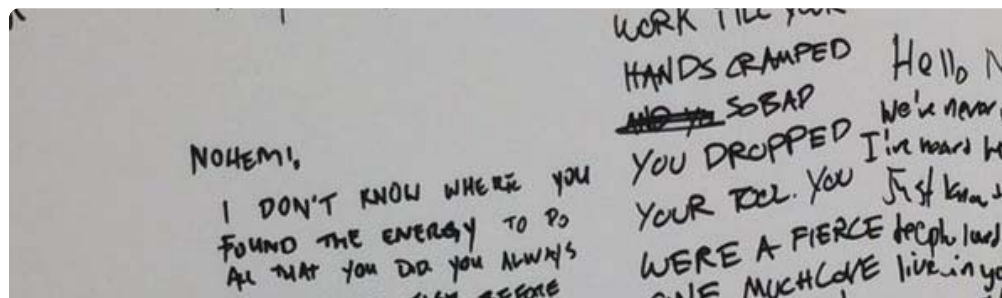 NOHEMI,
I DON'T KNOW WHERE YOU
FOUND THE ENERGY TO DO
ALL THAT YOU DID. YOU ALWAYS
BEFORE
WORK TILL YOUR
HANDS CRAMPED
SO BAD
YOU DROPPED
YOUR TOOL. YOU
WERE A FIERCE
ONE MUCH LOVE
Hello N
We've never
I've heard
Just know
deeply loved
live in yo